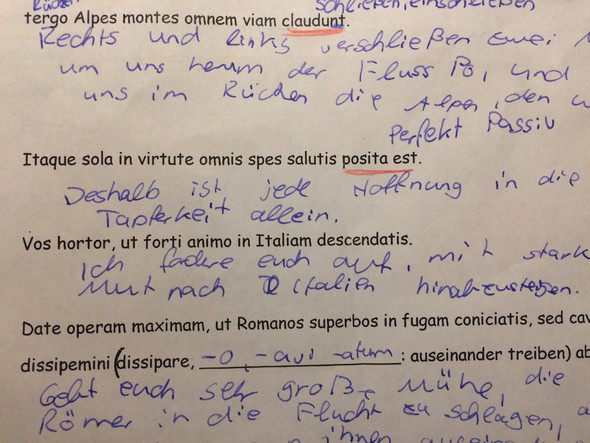 Rücken schließen, einschließen
tergo Alpes montes omnem viam claudunt.
Rechts und links verschließen zwei
um uns herum der Fluss Po, und
uns im Rücken die Alpen, den
Perfekt Passiv
Itaque sola in virtute omnis spes salutis posita est.
Deshalb ist jede Hoffnung in die
Tapferkeit allein.
Vos hortor, ut forti animo in Italiam descendatis.
Ich fodere euch auf, mit stark
Mut nach Italien hinabzusteigen.
Date operam maximam, ut Romanos superbos in fugam coniciatis, sed cav
dissipemini (dissipare, -o, -avi -atum : auseinander treiben) ab
Gebt euch sehr große Mühe, die
Römer in die Flucht zu schlagen, a
ihnen